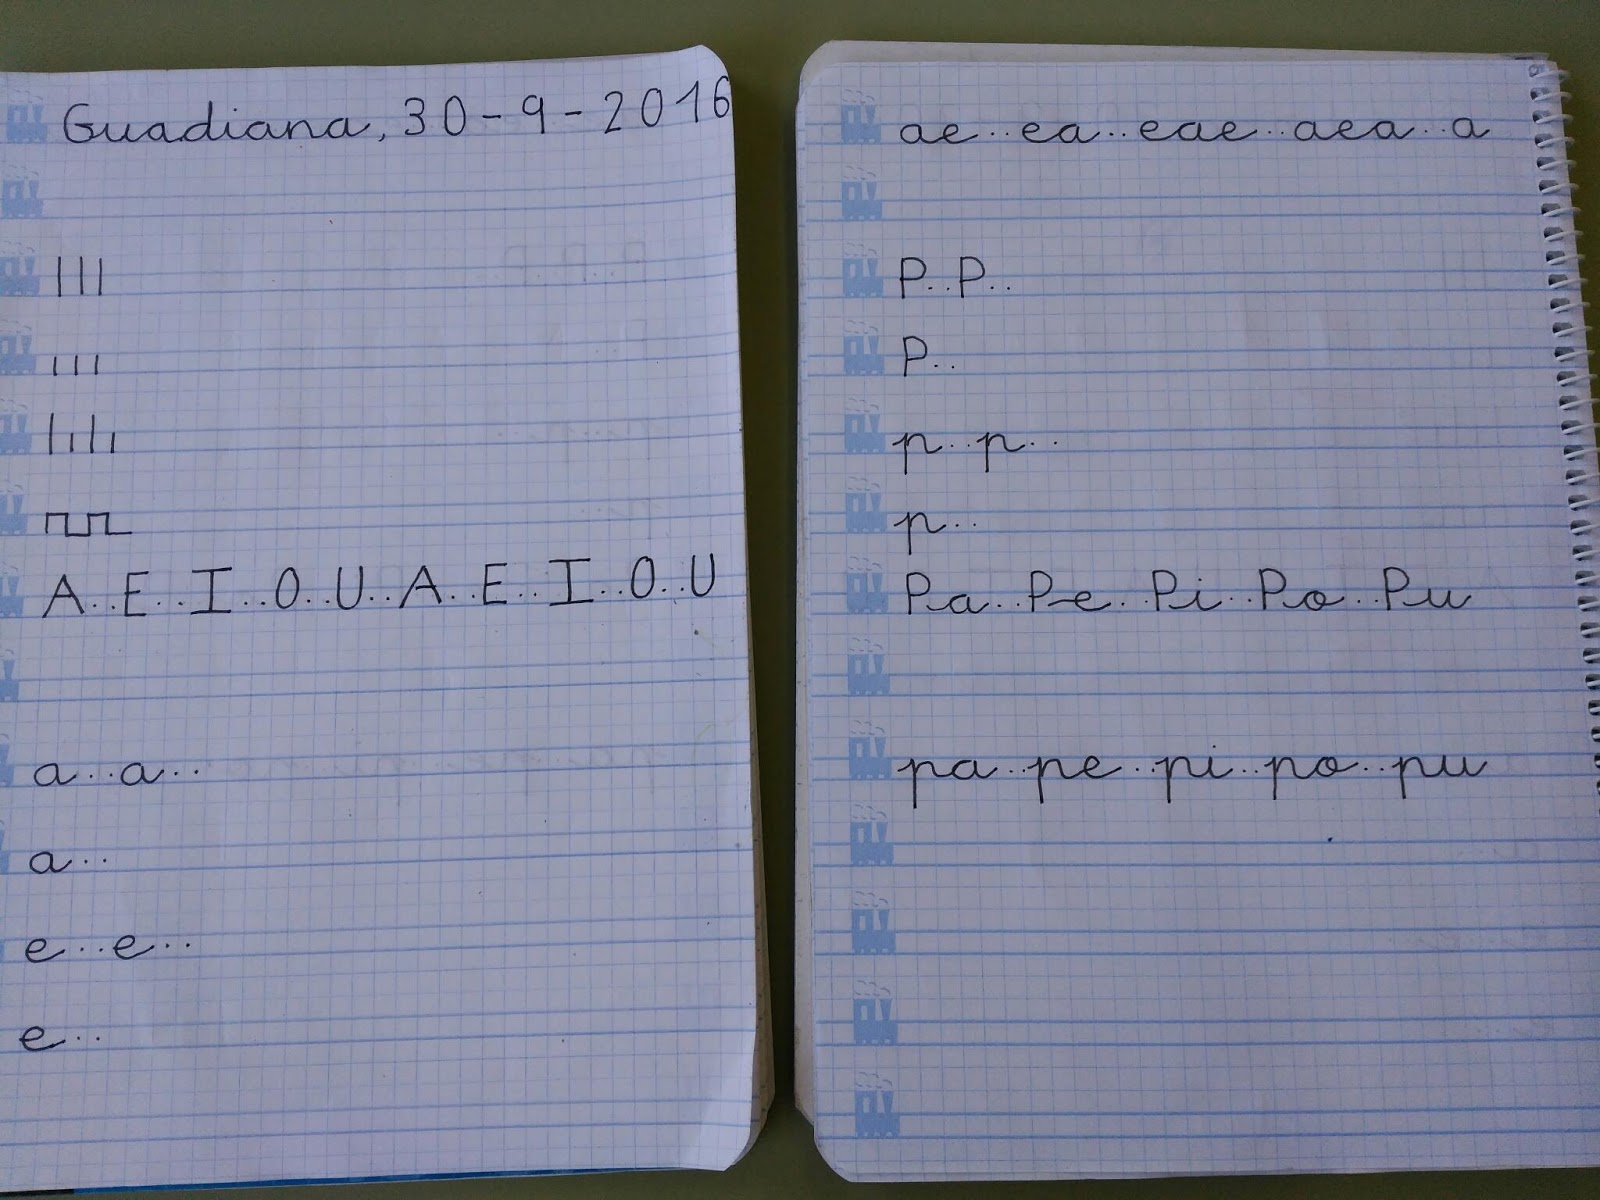 Guadiana, 30-9-2016
A..E..I..O..U..A..E..I..O..U
a..a..
a..
e..e..
e..
ae..ea..eae..aea..a
P..P..
P..
p..p..
p..
Pa..Pe..Pi..Po..Pu
pa..pe..pi..po..pu